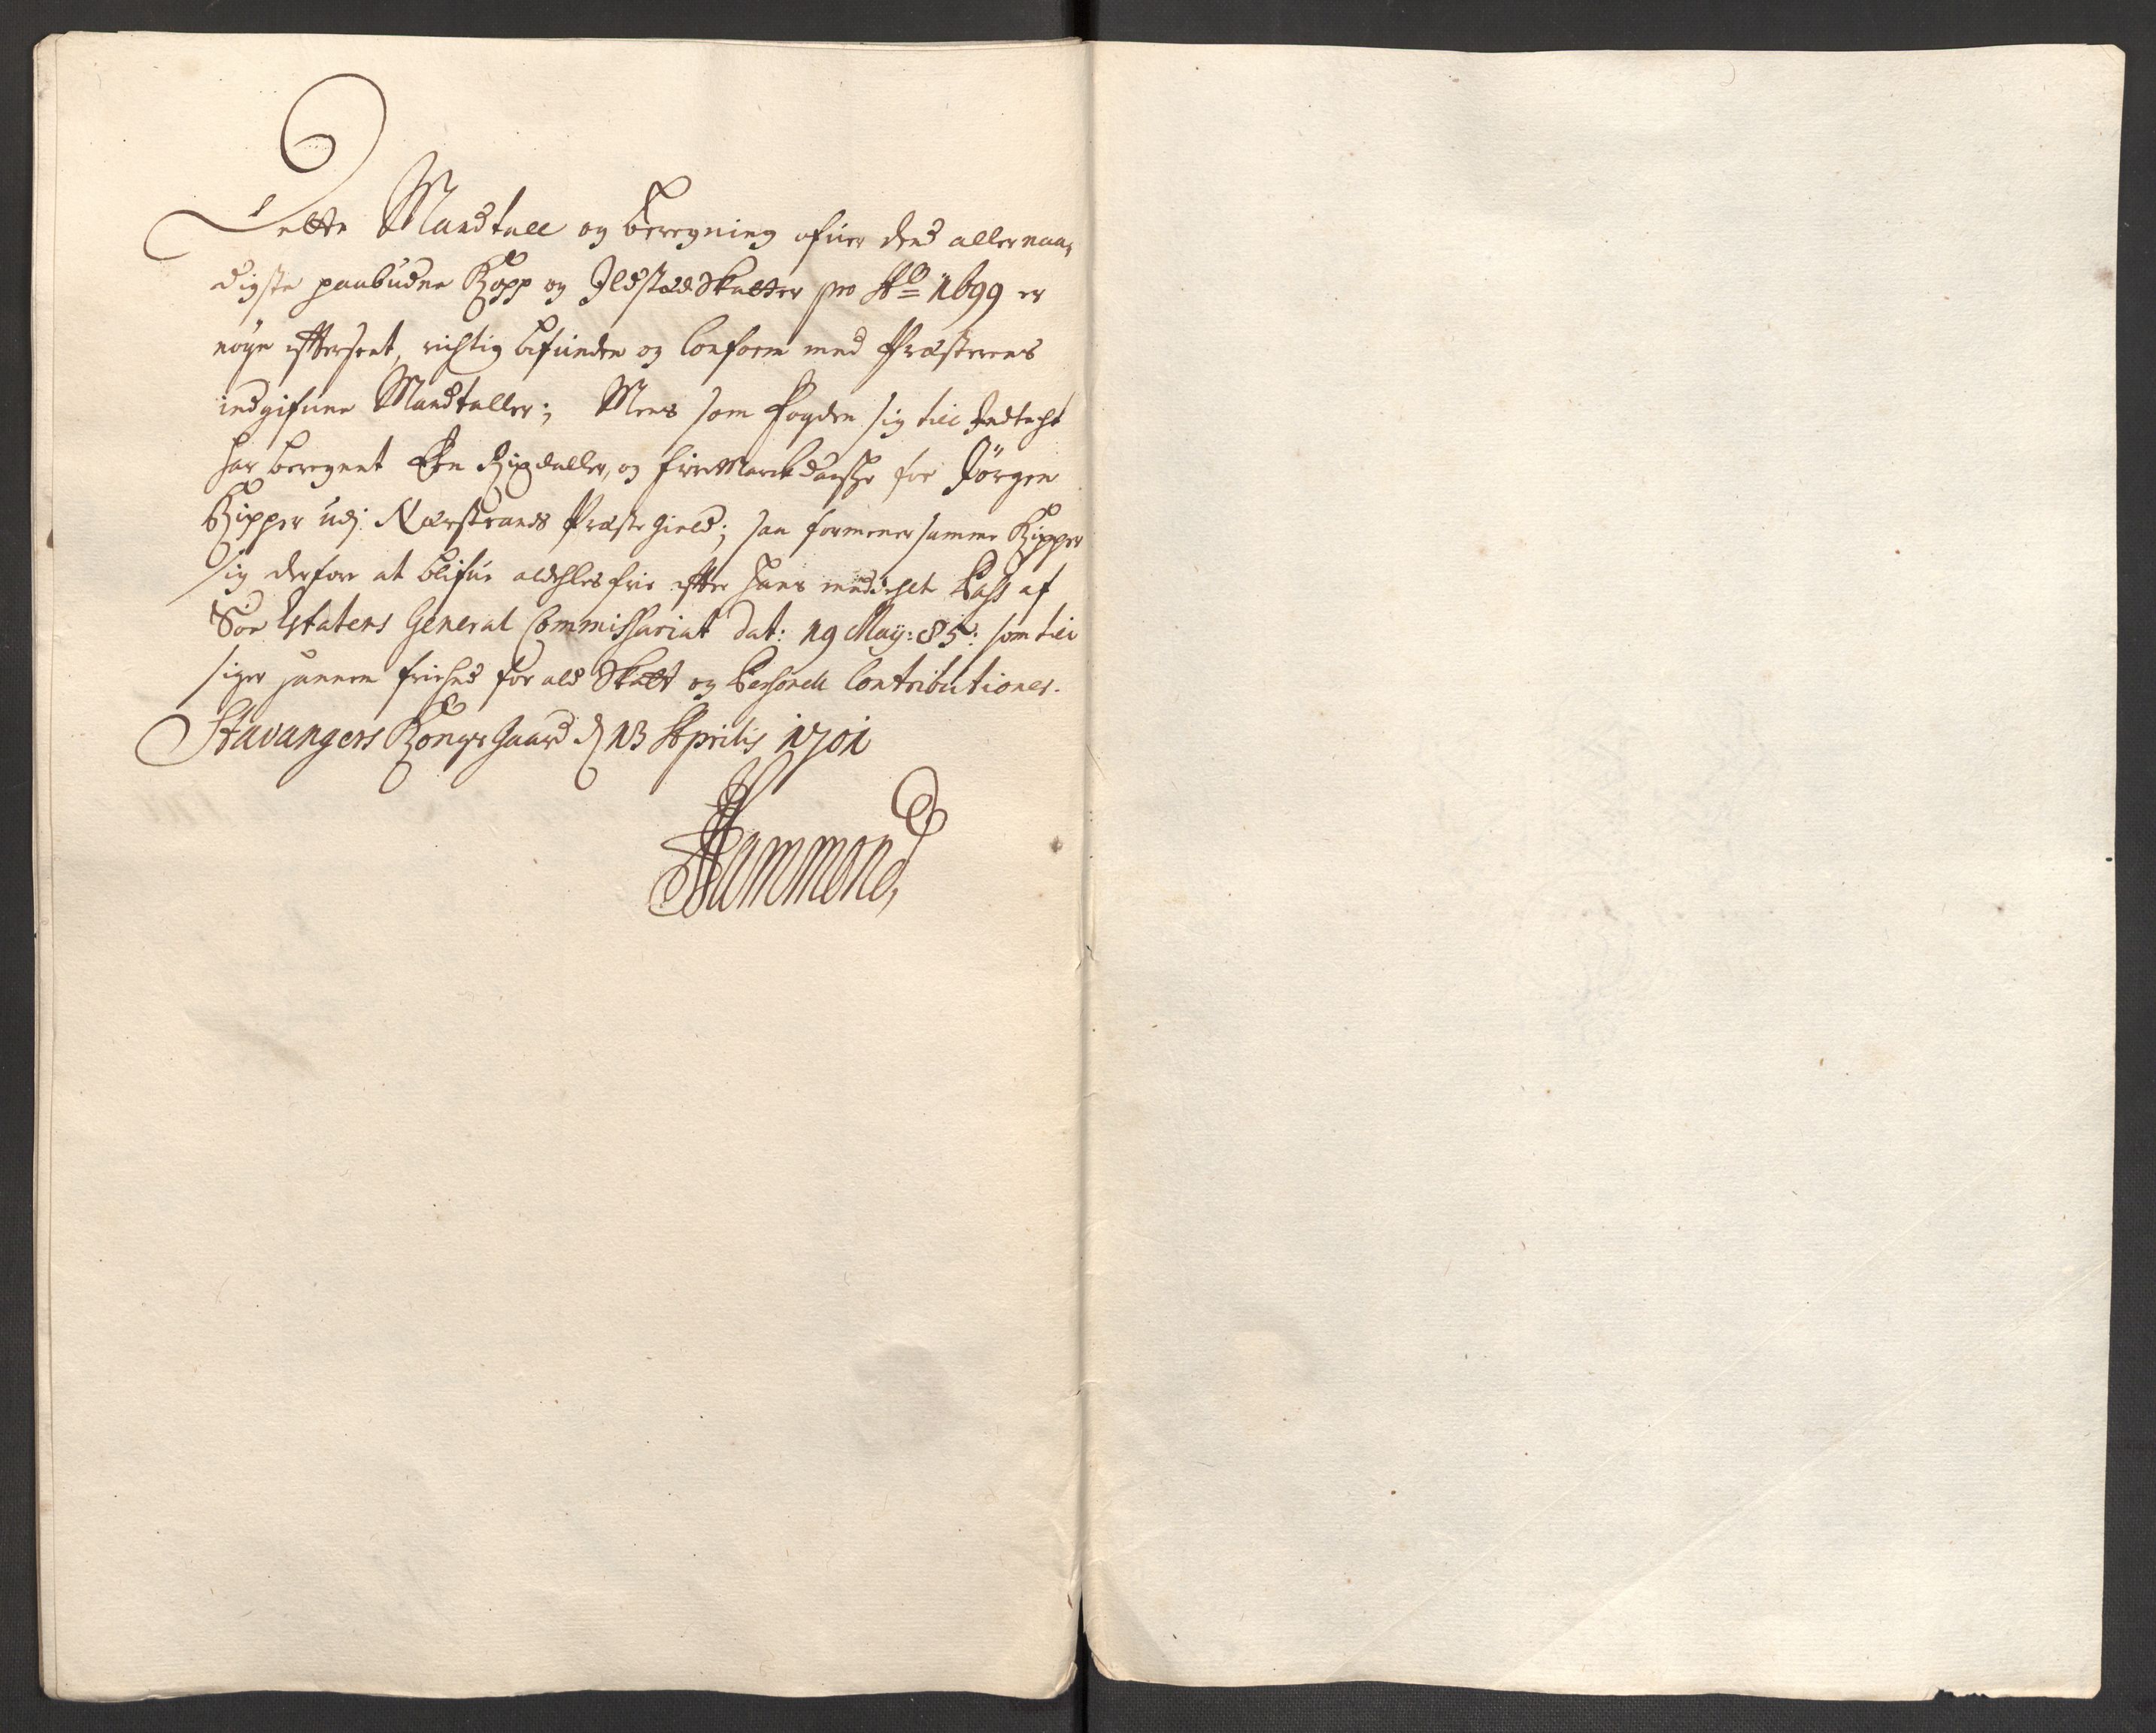 Dette Mandtall og beregning ofuer dend allernaa,
digste paabudne Kopp og Ildstæd Skatter pro Ao 1699 er
nöye efterseet, richtig befunden og Conform med Præsternes
indgifune Mandtaller; Mens som fogden sig till Indtecht
har beregnet Een Rixdaller, og fire Marck danske for Jörgen
Kipper udj: Nærstrands Præste Gield; saa formener samme Kipper
sig derfore at blifue aldehles frie efter hans meddehlt Pass af
Söe Etatens General Commissariat dat: 19 Maÿ: 85: som till
siger hannem friehed for ald Skatt og Personell Contributioner.
Stavangers Kongs Gaard d 13 Aprilis 1701
Hammond,